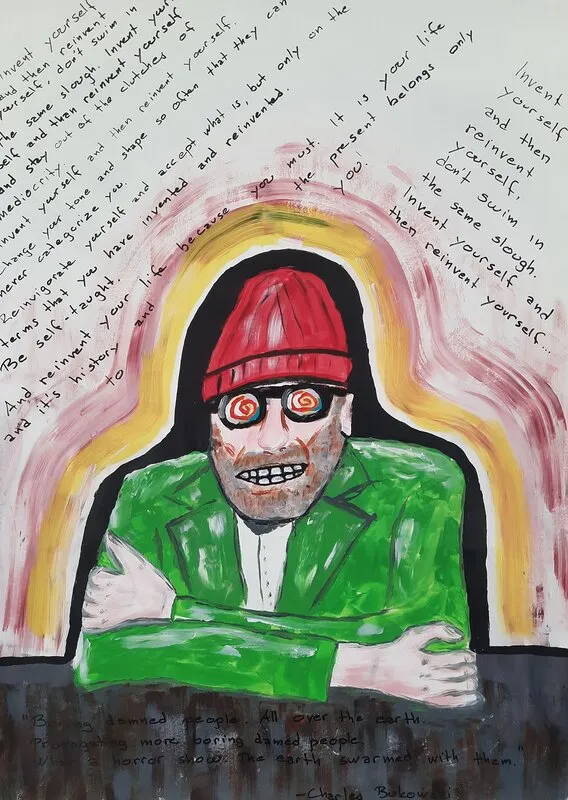 Invent yourself
and then reinvent
yourself, don't swim in
the same slough. Invent your
self and than reinvent yourself
and stay out of the clutches of
mediocrity.
Invent yourself and then reinvent yourself.
Change your tone and shape so often that they can
never categorize you.
Reinvigorate yourself and accept what is, but only on the
terms that you have invented and reinvented.
Be self taught.
And reinvent your life because you must. It is your life
and it's history and the present belongs only
to you.
Invent
yourself
and then
reinvent
yourself,
don't swim in
the same slough.
Invent yourself and
then reinvent yourself...
"Boring domned people. All over the earth.
more boring damed people
What a horror show. The earth swarmed with them."
-Charles Bukowski